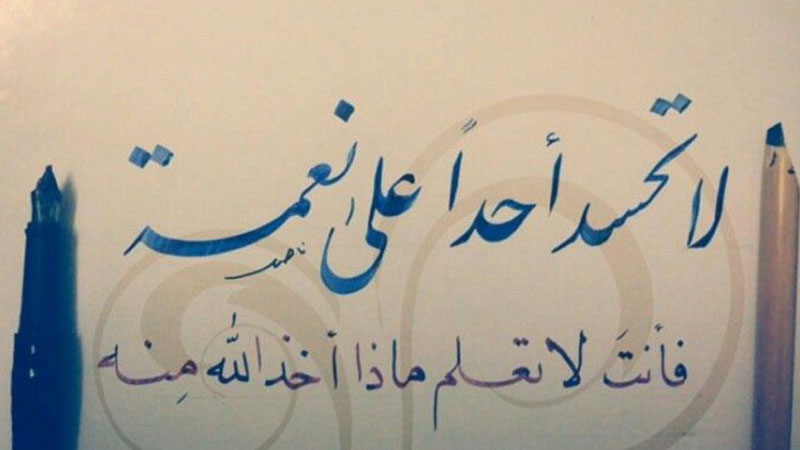 لا تحسد أحداً على نعمة
ناصر
فأنتَ لا تعلم ماذا أخذ الله مِنه